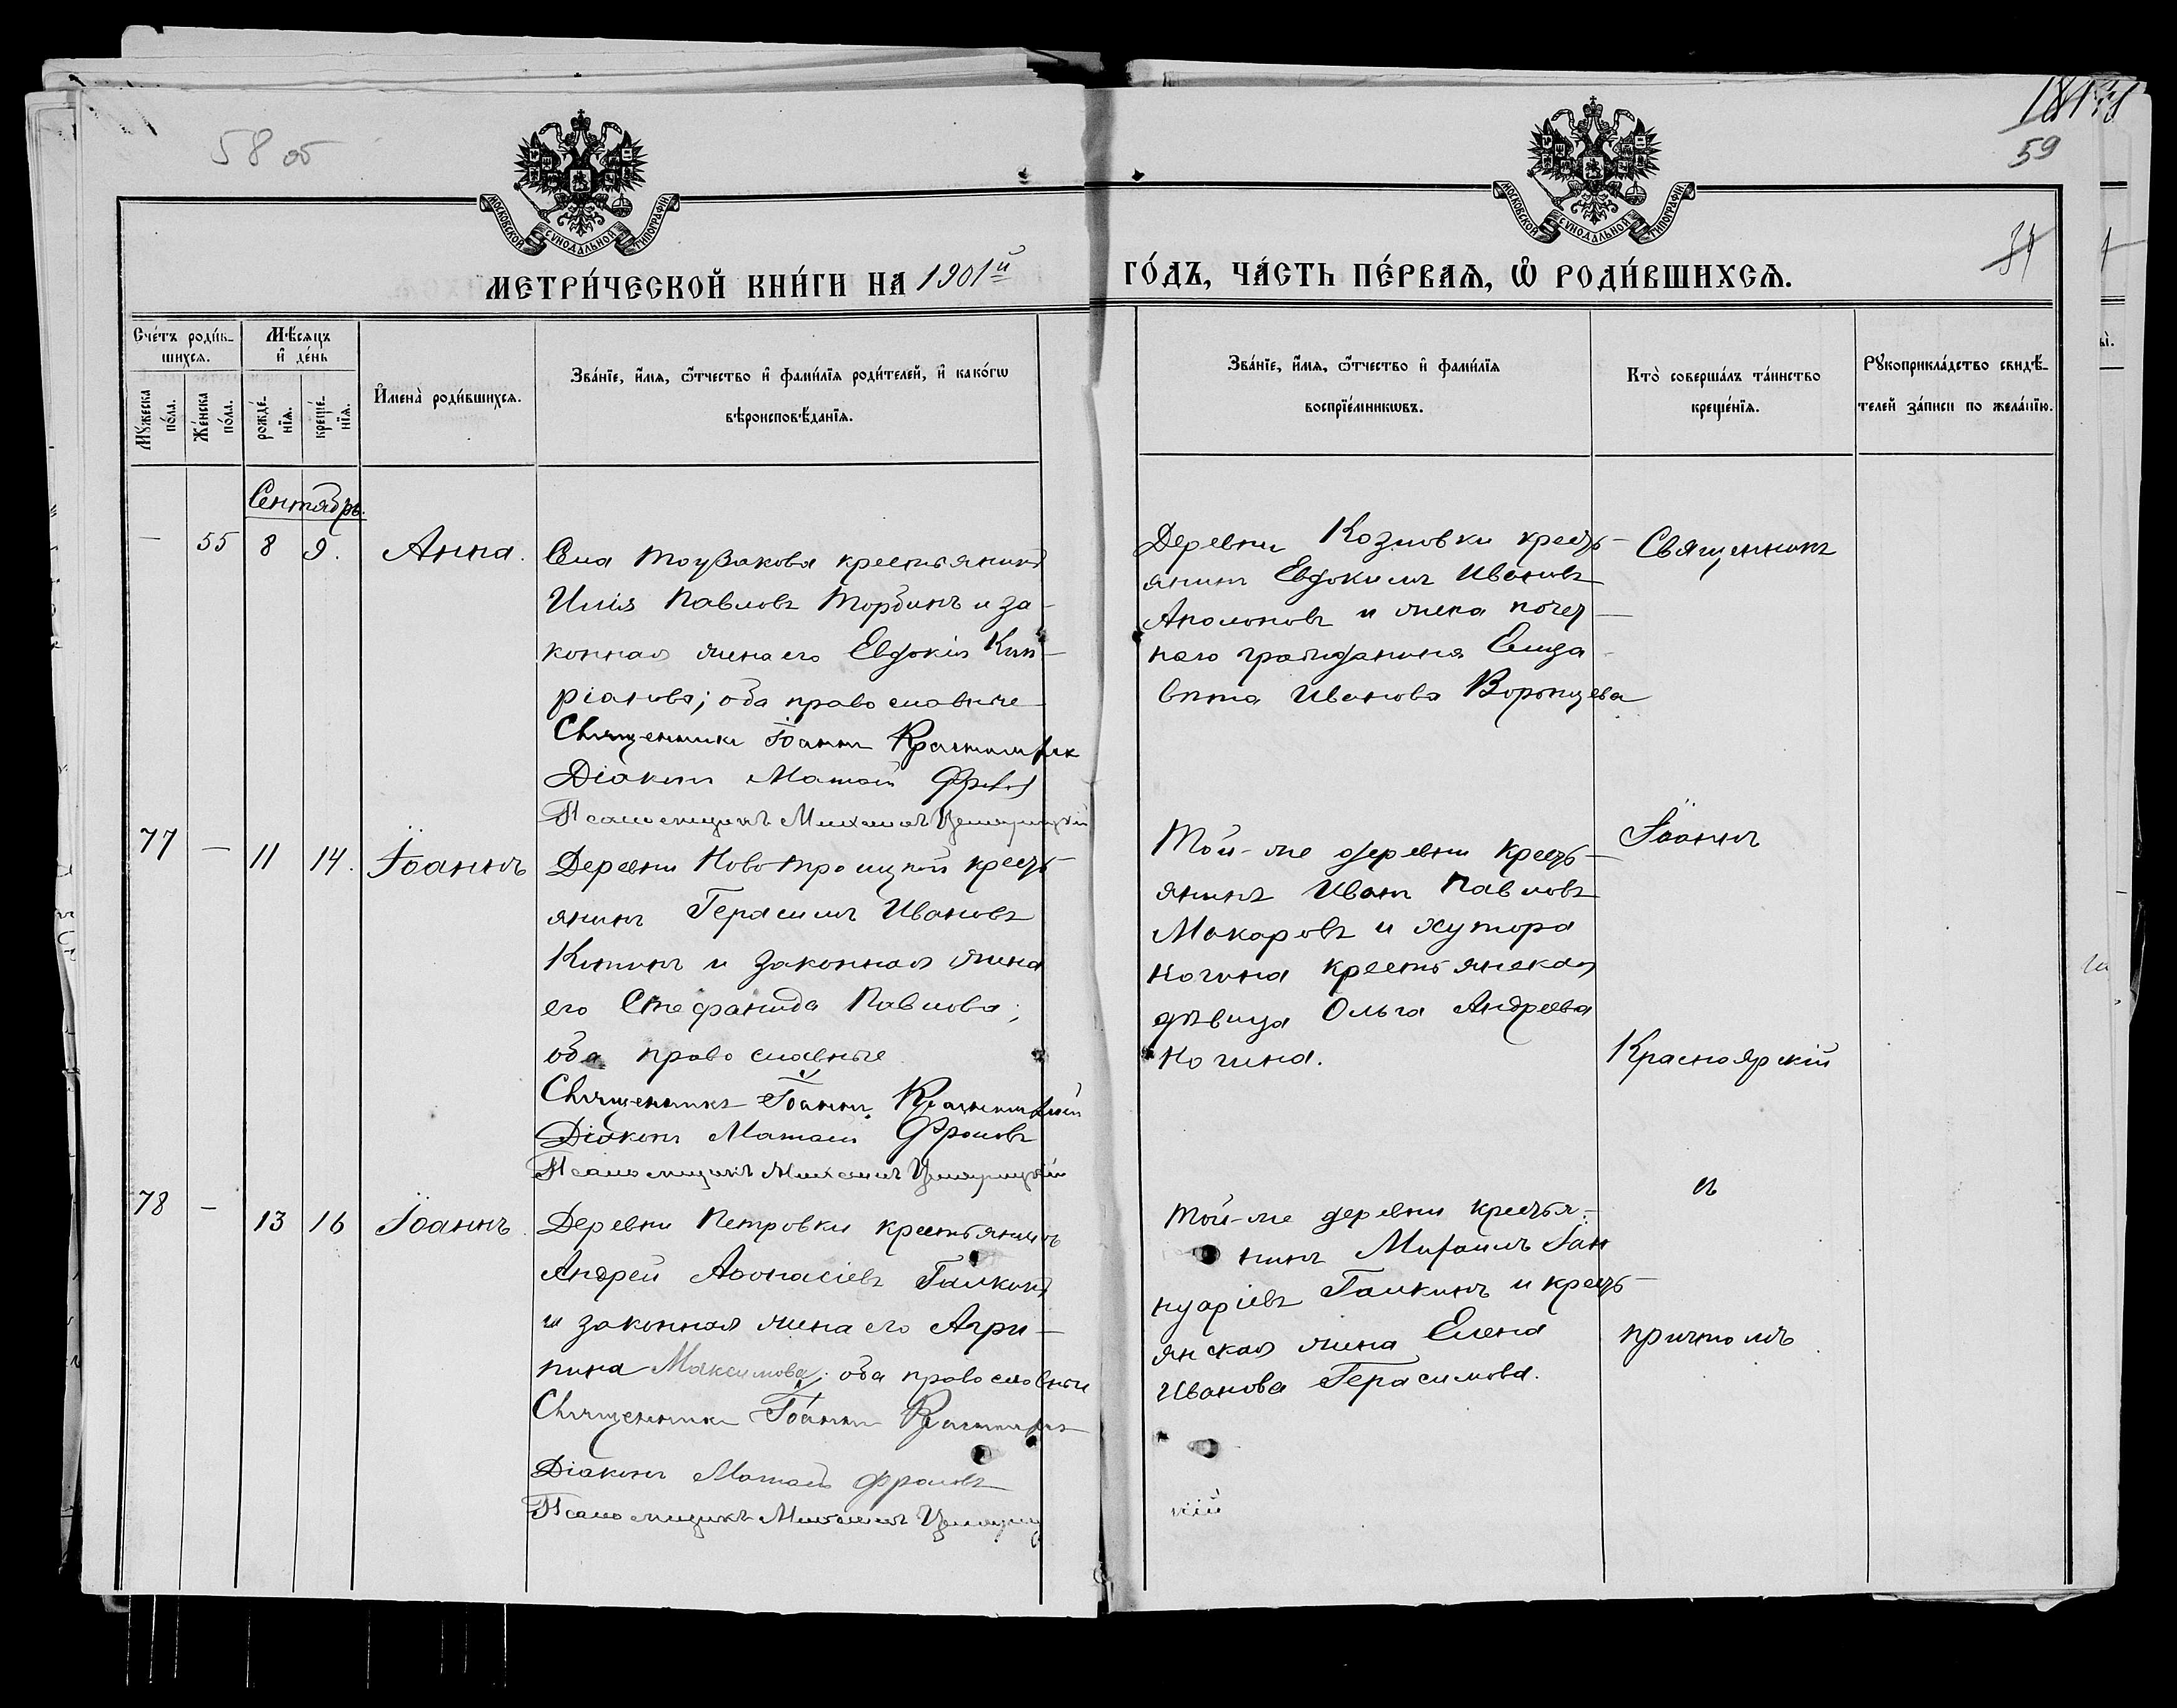 58 об
59
МОСКОВСКОЙ СѴНОДАЛЬНОЙ ТИПОГРАФІИ
МОСКОВСКОЙ СѴНОДАЛЬНОЙ ТИПОГРАФІИ
МЕТРИ́ЧЕСКОЙ КНИ́ГИ НА 1901й ГО́ДЪ, ЧА́СТЬ ПЕ́РВАѦ, Ѡ҆ РОДИ́ВШИХСѦ.
Сче́тъ роди́в-
шихсѧ.
Мꙋ́жеска
по́ла.
Же́нска
по́ла.
Мѣ́сяцъ
и҆ де́нь
рожде́-
нїѧ.
креще́-
нїѧ.
И҆мена̀ роди́вшихсѧ.
Зва́нїе, и҆́мѧ, ѻ҆́тчество и҆ фами́лїѧ роди́телей, и҆ како́гѡ
вѣроисповѣ́данїѧ.
Зва́нїе, и҆́мѧ, ѻ҆́тчество и҆ фами́лїѧ
воспрїе́мникѡвъ.
Кто̀ соверша́лъ та́инство
креще́нїѧ.
Рꙋкоприкла́дство свидѣ́-
телей за́писи по жела́нїю.
Сентябрь.
— 55 8 9. Анна.
Села Тоузакова крестьянинъ
Илія Павловъ Торбинъ и за-
конная жена его Евдокія Кип-
ріанова; оба православные
Священникъ Іоаннъ
Діаконъ Матѳей
Псаломщикъ Михаилъ
Деревни Козловки кресть-
янинъ Евдокимъ Ивановъ
Аполоновъ и жена почет-
наго гражданина Елиза-
вета Иванова Воронцева
Священникъ
77 — 11 14. Іоаннъ
Деревни Ново-Троицкой кресть-
янинъ Герасимъ Ивановъ
и законная жена
его Стефанида Павлова;
оба православные
Священникъ Іоаннъ
Діаконъ Матѳей Фроловъ
Псаломщикъ Михаилъ
Той-же деревни кресть-
янинъ Иванъ Павловъ
Макаровъ и хутора
Ногина крестьянская
дѣвица Ольга Андреева
Ногина.
Іоаннъ
Красноярскій
78 — 13 16 Іоаннъ.
Деревни Петровки крестьянинъ
Андрей Аѳонасіевъ Галкинъ
и законная жена его Агри-
пина Максимова; оба православные
Священникъ Іоаннъ
Діаконъ Матѳей Фроловъ
Псаломщикъ Михаилъ
Той-же деревни крестья-
нинъ Михаилъ Іан
нуаріевъ Галкинъ и кресть-
янская жена Елена
Иванова Герасимова.
съ
причтомъ.